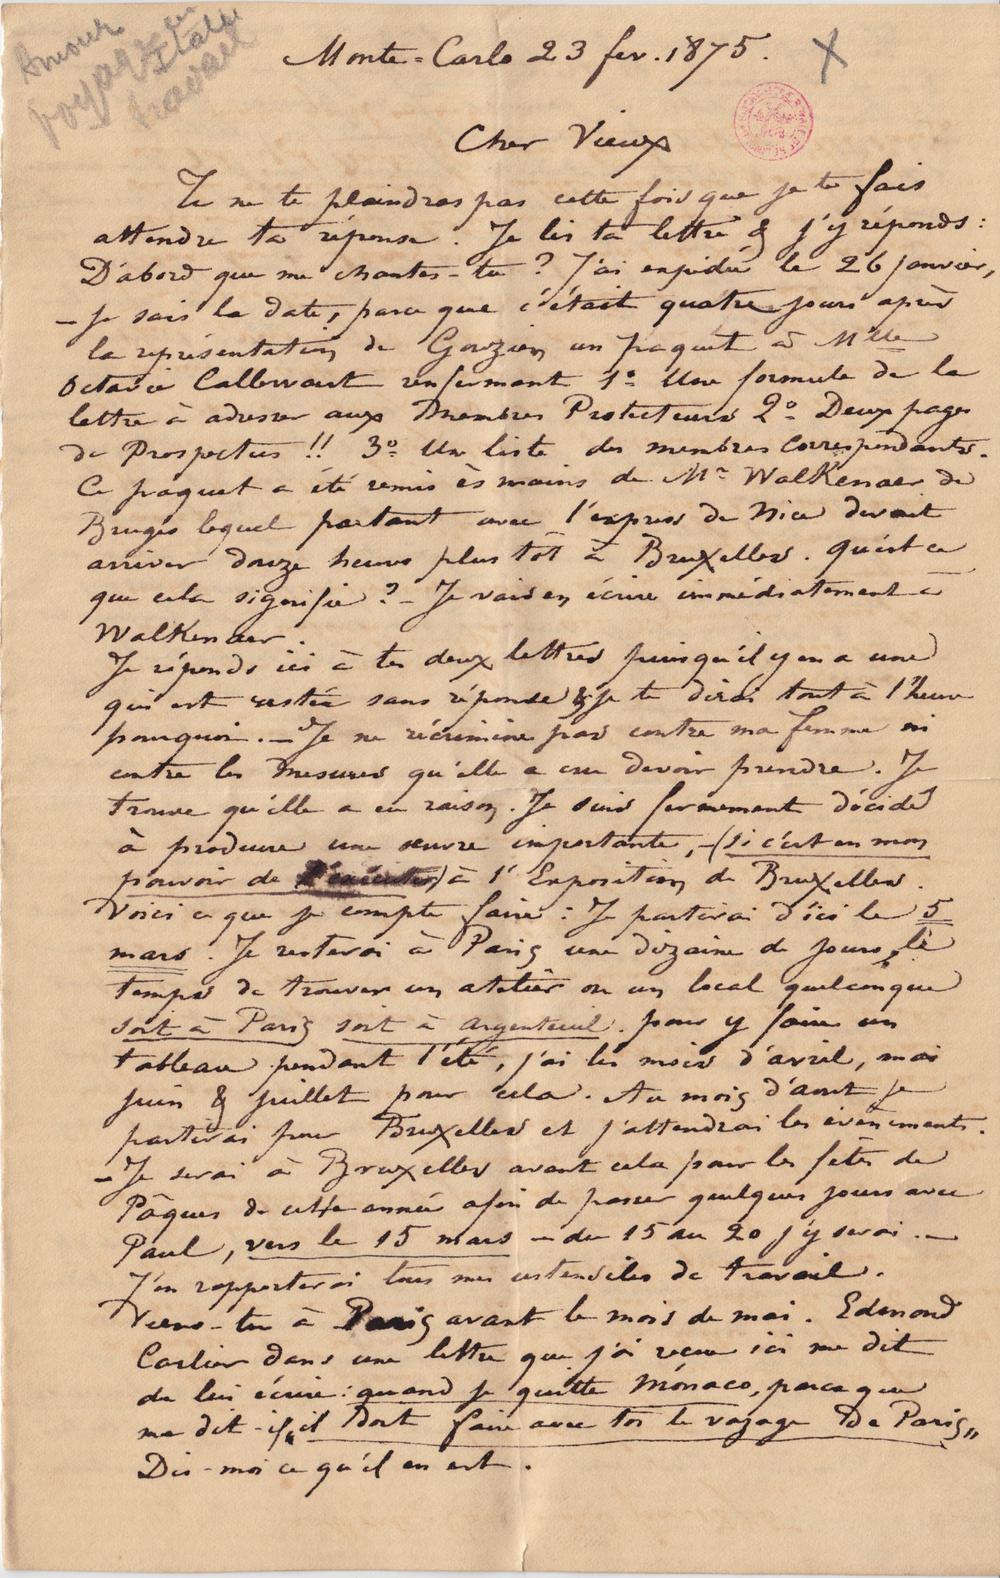 Amour
voyage en
Italie
travail
Monte-Carlo 23 fev. 1875.
Cher Vieux
Tu ne te plaindras pas cette fois que je te fais
attendre ta réponse. Je lis ta lettre & j'y réponds :
D'abord que me chantes-tu ? J'ai expédié le 26 janvier,
- je sais la date, parce que c'était quatre jours après
la représentation de Gouzien un paquet à Mlle
Octavie Callewaert renfermant 1º Une formule de la
lettre à adresser aux Membres Protecteurs 2º Deux pages
de Prospectus !! 3º Un liste des membres correspondants.
Ce paquet a été remis ès mains de Mr Walkenaer de
Bruges lequel partant avec l'express de Nice devait
arriver douze heures plus tôt à Bruxelles. Qu'est ce
que cela signifie ? - Je vais en écrire immédiatement à
Walkenaer.
Je réponds ici à tes deux lettres puisqu'il y en a une
qui est restée sans réponse & je te dirai tout à l'heure
pourquoi. - Je ne récrimine pas contre ma femme ni
contre les mesures qu'elle a cru devoir prendre. Je
trouve qu'elle a eu raison. Je suis fermement décidé
à produire une œuvre importante, - (si c'est en mon
pouvoir de l'exécuter) à l'Exposition de Bruxelles.
Voici ce que je compte faire : Je partirai d'ici le 5
mars. Je resterai à Paris une dizaine de jours, le
temps de trouver un atelier ou un local quelconque
soit à Paris soit à Argenteuil. pour y faire un
tableau pendant l'été, j'ai les mois d'avril, mai
juin & juillet pour cela. Au mois d'aout je
partirai pour Bruxelles et j'attendrai les évènements.
- Je serai à Bruxelles avant cela pour les fêtes de
Pâques de cette année afin de passer quelques jours avec
Paul, vers le 15 mars - du 15 au 20 j'y serai. -
J'en rapporterai tous mes ustensiles de travail.
Viens-tu à Paris avant le mois de mai. Edmond
Carlier dans une lettre que j'ai reçue ici me dit
de lui écrire : quand je quitte Monaco, parce que
me dit-il, „il doit faire avec toi le voyage de Paris„
Dis-moi ce qu'il en est.